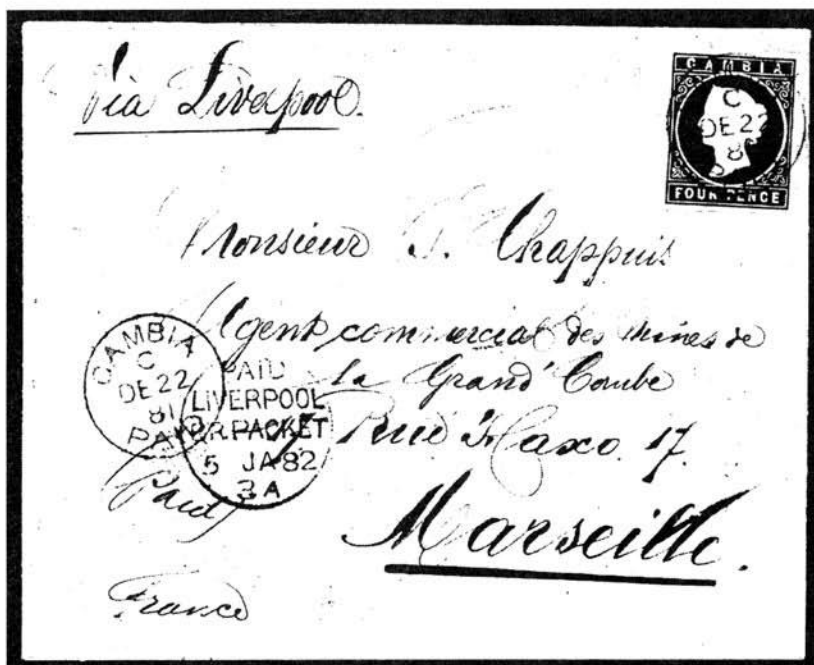 Via Liverpool.
GAMBIA
C
DE 22
8
FOUR PENCE
Monsieur F. Chappuis
Agent commercial des Mines de
la Grand'Combe
Rue Haxo. 17.
Marseille.
GAMBIA
C
DE 22
81
PAID
PAID
LIVERPOOL
BR. PACKET
5 JA 82
3 A
Paid
France